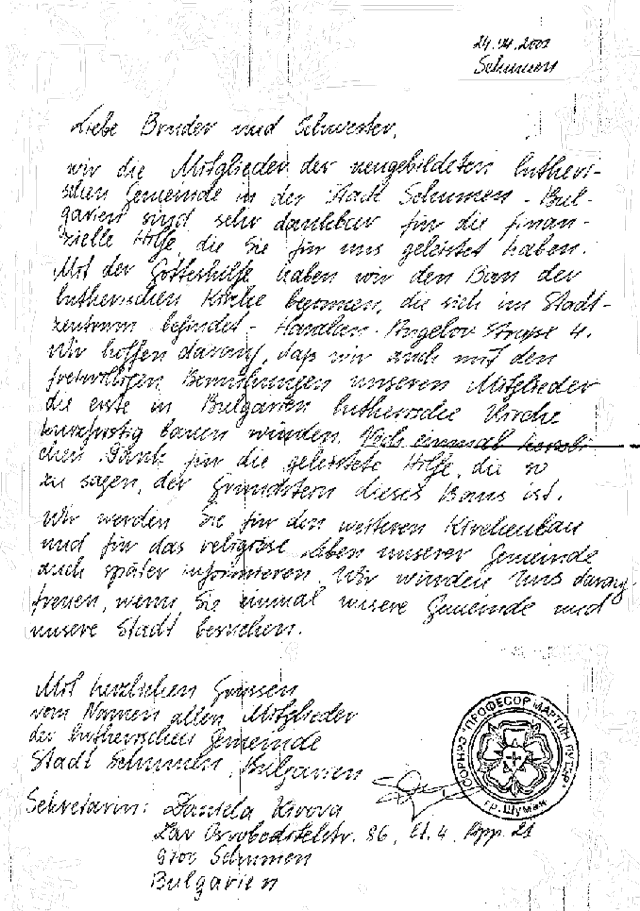 24. 04. 2001
Schumen
Liebe Brüder und Schwester,
wir die Mitglieder der neugebildeten lutheri-
schen Gemeinde in der Stadt Schumen - Bul-
garien sind sehr dankbar für die finan-
zielle Hilfe, die Sie für uns geleistet haben.
Mit der Gotteshilfe haben wir den Bau der
lutherischen Kirche begonnen, die sich im Stadt-
zentrum befindet - Straße 4.
Wir hoffen darauf, daß wir auch mit den
freiwilligen Bemühungen unseren Mitglieder
die erste in Bulgarien lutherische Kirche
kurzfristig bauen würden. Noch einmal herzli-
chen Dank für die geleistete Hilfe, die so
zu sagen, der Grundstein dieses Baus ist.
Wir werden Sie für den weiteren Kirchenbau
und für das religiöse Leben unserer Gemeinde
auch später informieren. Wir würden uns darauf
freuen, wenn Sie einmal unsere Gemeinde und
unsere Stadt besuchen.
Mit herzlichen Grüssen
vom Namen allen Mitglieder
der lutherischen Gemeinde
Stadt Schumen, Bulgarien
"ПРОФЕСОР МАРТИН ЛУТЕР"
гр. Шумен
Sekretärin: Daniela
86, Et. 4, App. 21
9700 Schumen
Bulgarien